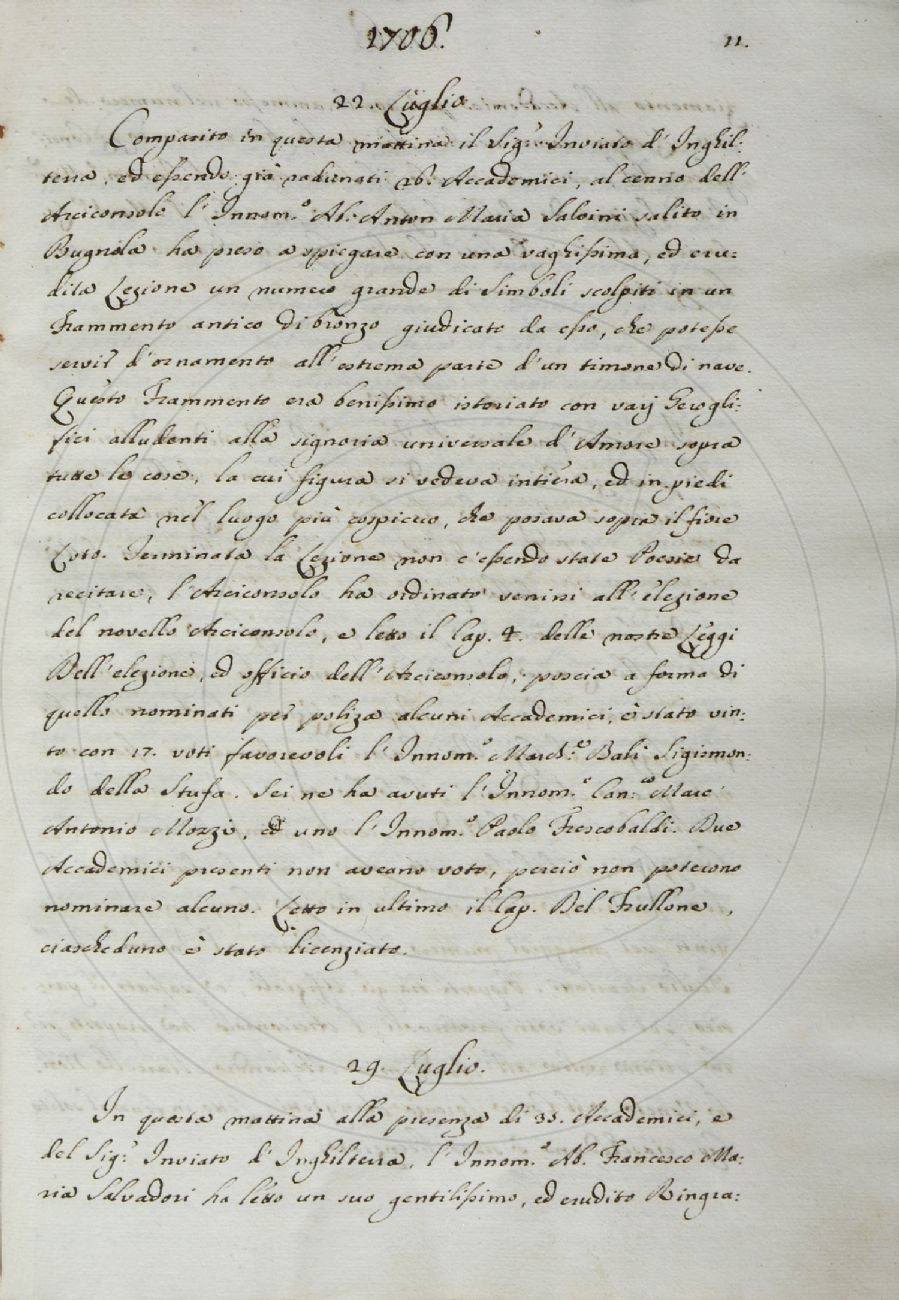 1706.
11.
22. Luglio.
Comparito in questa mattina il Sig.r Inviato d'Inghil:
terra, ed essendo già radunati 26. Accademici, al cenno dell'
Arciconsolo l'Innom.o Ab. Anton Maria Salvini salito in
Bugnola ha preso a spiegare con una vaghissima, ed eru:
dita Lezione un numero grande di Simboli scolpiti in un
Frammento antico di bronzo giudicato da esso, che potesse
servir d'ornamento all'estrema parte d'un timone di nave.
Questo Frammento era benissimo istoriato con varj Gerogli:
fici alludenti alla signoria universale d'Amore sopra
tutte le cose, la cui figura si vedeva intiera, ed in piedi
collocata nel luogo più cospicuo, che posava sopra il fiore
Loto. Terminata la Lezione non c'essendo state Poesie da
recitare, l'Arciconsolo ha ordinato venirsi all'elezione
del novello Arciconsolo, e letto il Cap. 4. delle nostre Leggi
Dell'elezione, ed officio dell'Arciconsolo, poscia a forma di
quello nominati per poliza alcuni Accademici, è stato vin:
to con 17. voti favorevoli l'Innom.o March.e Balì Sigismon:
do della Stufa. Sei ne ha avuti l'Innom.o Can.co Marc'
Antonio Mozzi, ed uno l'Innom.o Paolo Frescobaldi. Due
Accademici presenti non aveano voto, perciò non poterono
nominare alcuno. Letto in ultimo il Cap. Del Frullone,
ciascheduno è stato licenziato.
29. Luglio.
In questa mattina alla presenza di 35. Accademici, e
del Sig.r Inviato d'Inghilterra, l'Innom.o Ab. Francesco Ma:
ria Salvadori ha letto un suo gentilissimo, ed erudito Ringra: